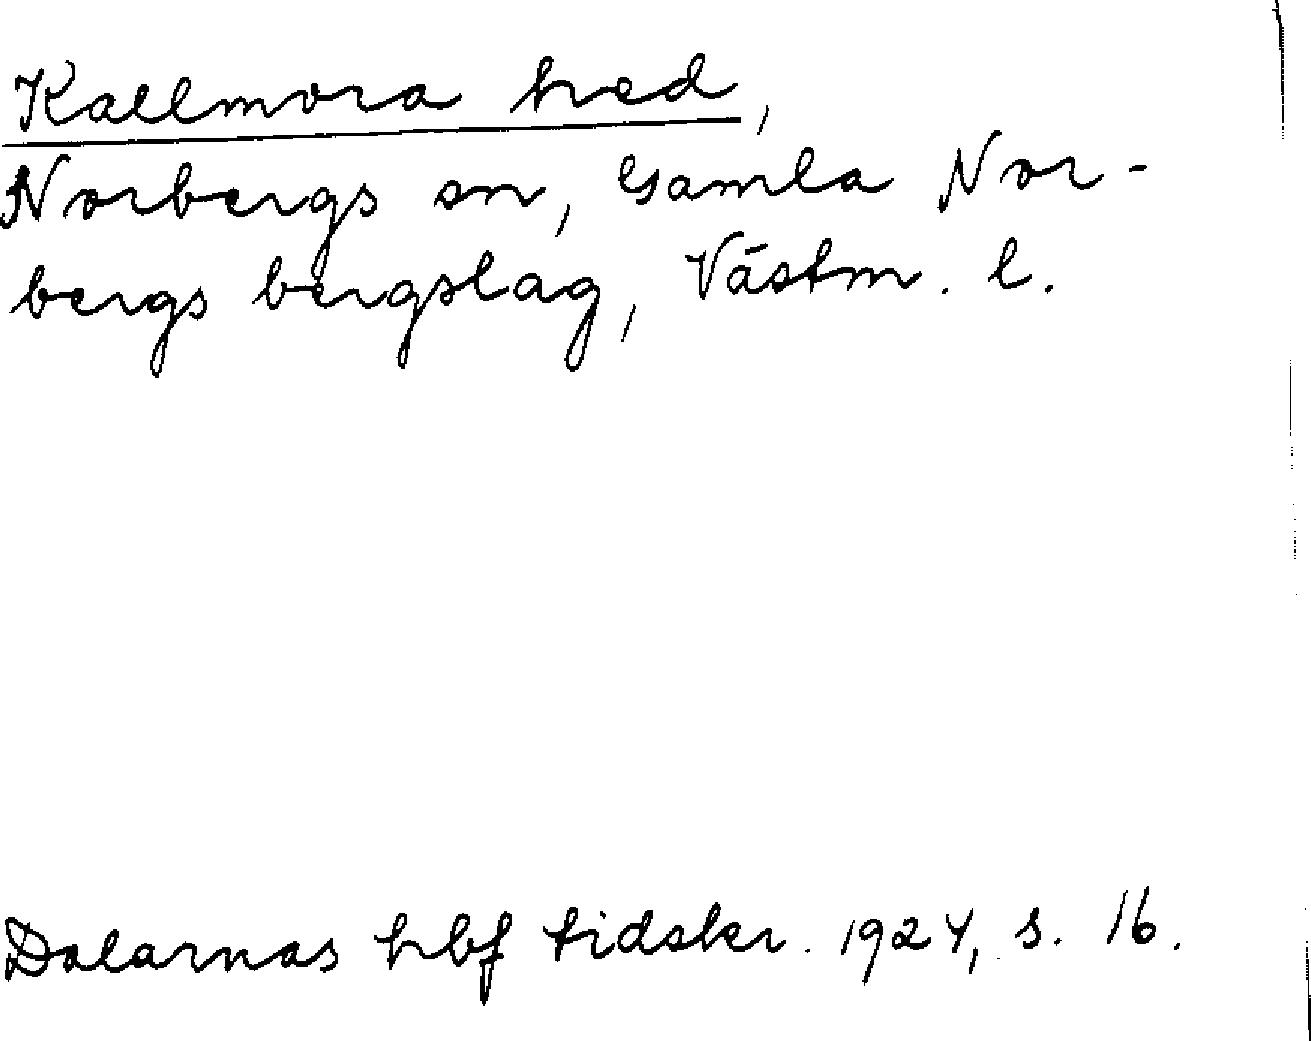 Kallmora hed,
Norbergs sn, Gamla Nor-
bergs bergslag, Västm. l.
Dalarnas hbf tidskr. 1924, s. 16.